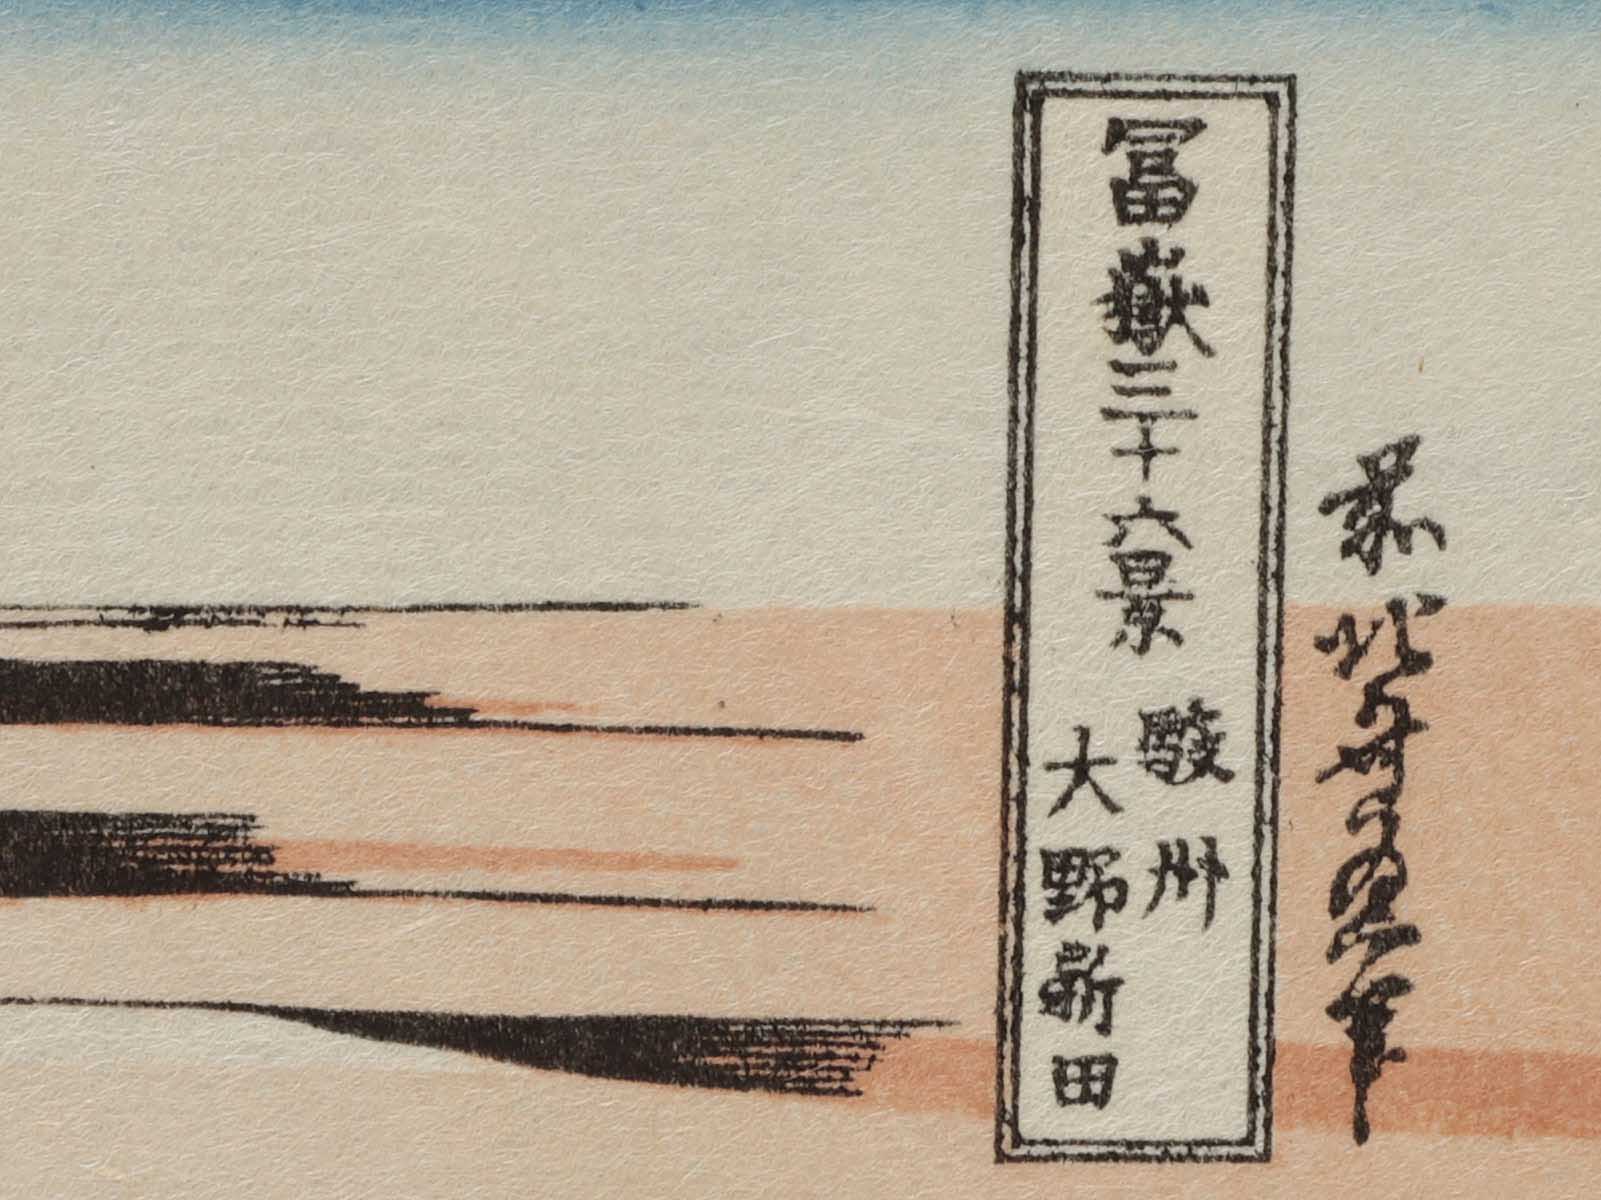 前北斎為一筆
冨嶽三十六景
駿州
大野新田